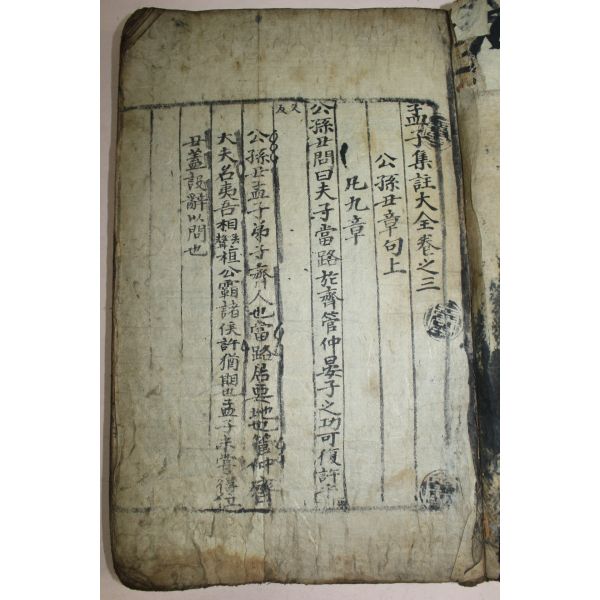 孟子集註大全卷之三
公孫丑章句上
凡九章
公孫丑問曰夫子當路於齊管仲晏子之功可復許乎
扶又反
公孫丑孟子弟子齊人也當路居要地也管仲齊
大夫名夷吾相去聲桓公霸諸侯許猶期也孟子未嘗得政
丑蓋設辭以問也